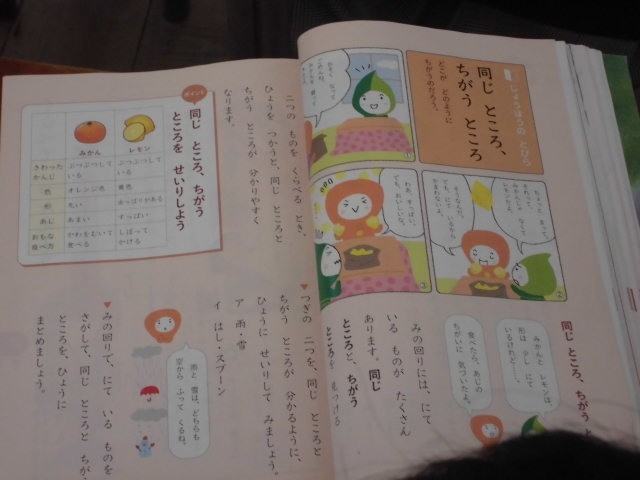 じょうほうの とびら
同じ ところ、
ちがう ところ
どこが どのように
ちがうのだろう。
わあ、すっぱい。
でも、おいしいな。
同じ ところ、ちがう
みかんと レモンは、
形は 少し にて
いるけれど……。
食べたら、あじの
ちがいに 気づいたよ。
みの回りには、にて
いる ものが たくさん
あります。同じ
ところと、ちがう
ところを 見つける
二つの ものを くらべる とき、
ひょうを つかうと、同じ ところと
ちがう ところが 分かりやすく
なります。
ポイント
同じ ところ、ちがう
ところを せいりしよう
みかん
レモン
さわった
かんじ
ぶつぶつして
いる
ぶつぶつして
いる
色
オレンジ色
黄色
形
丸い
出っぱりがある
あじ
あまい
すっぱい
おもな
食べ方
かわをむいて
食べる
しぼって
かける
▼つぎの 二つを、同じ ところと
ちがう ところが 分かるように、
ひょうに せいりして みましょう。
ア 雨・雪
イ はし・スプーン
雨と 雪は、どちらも
空から ふって くるね。
▼みの回りで、にて いる ものを
さがして、同じ ところと ちが
ところを、ひょうに
まとめましょう。